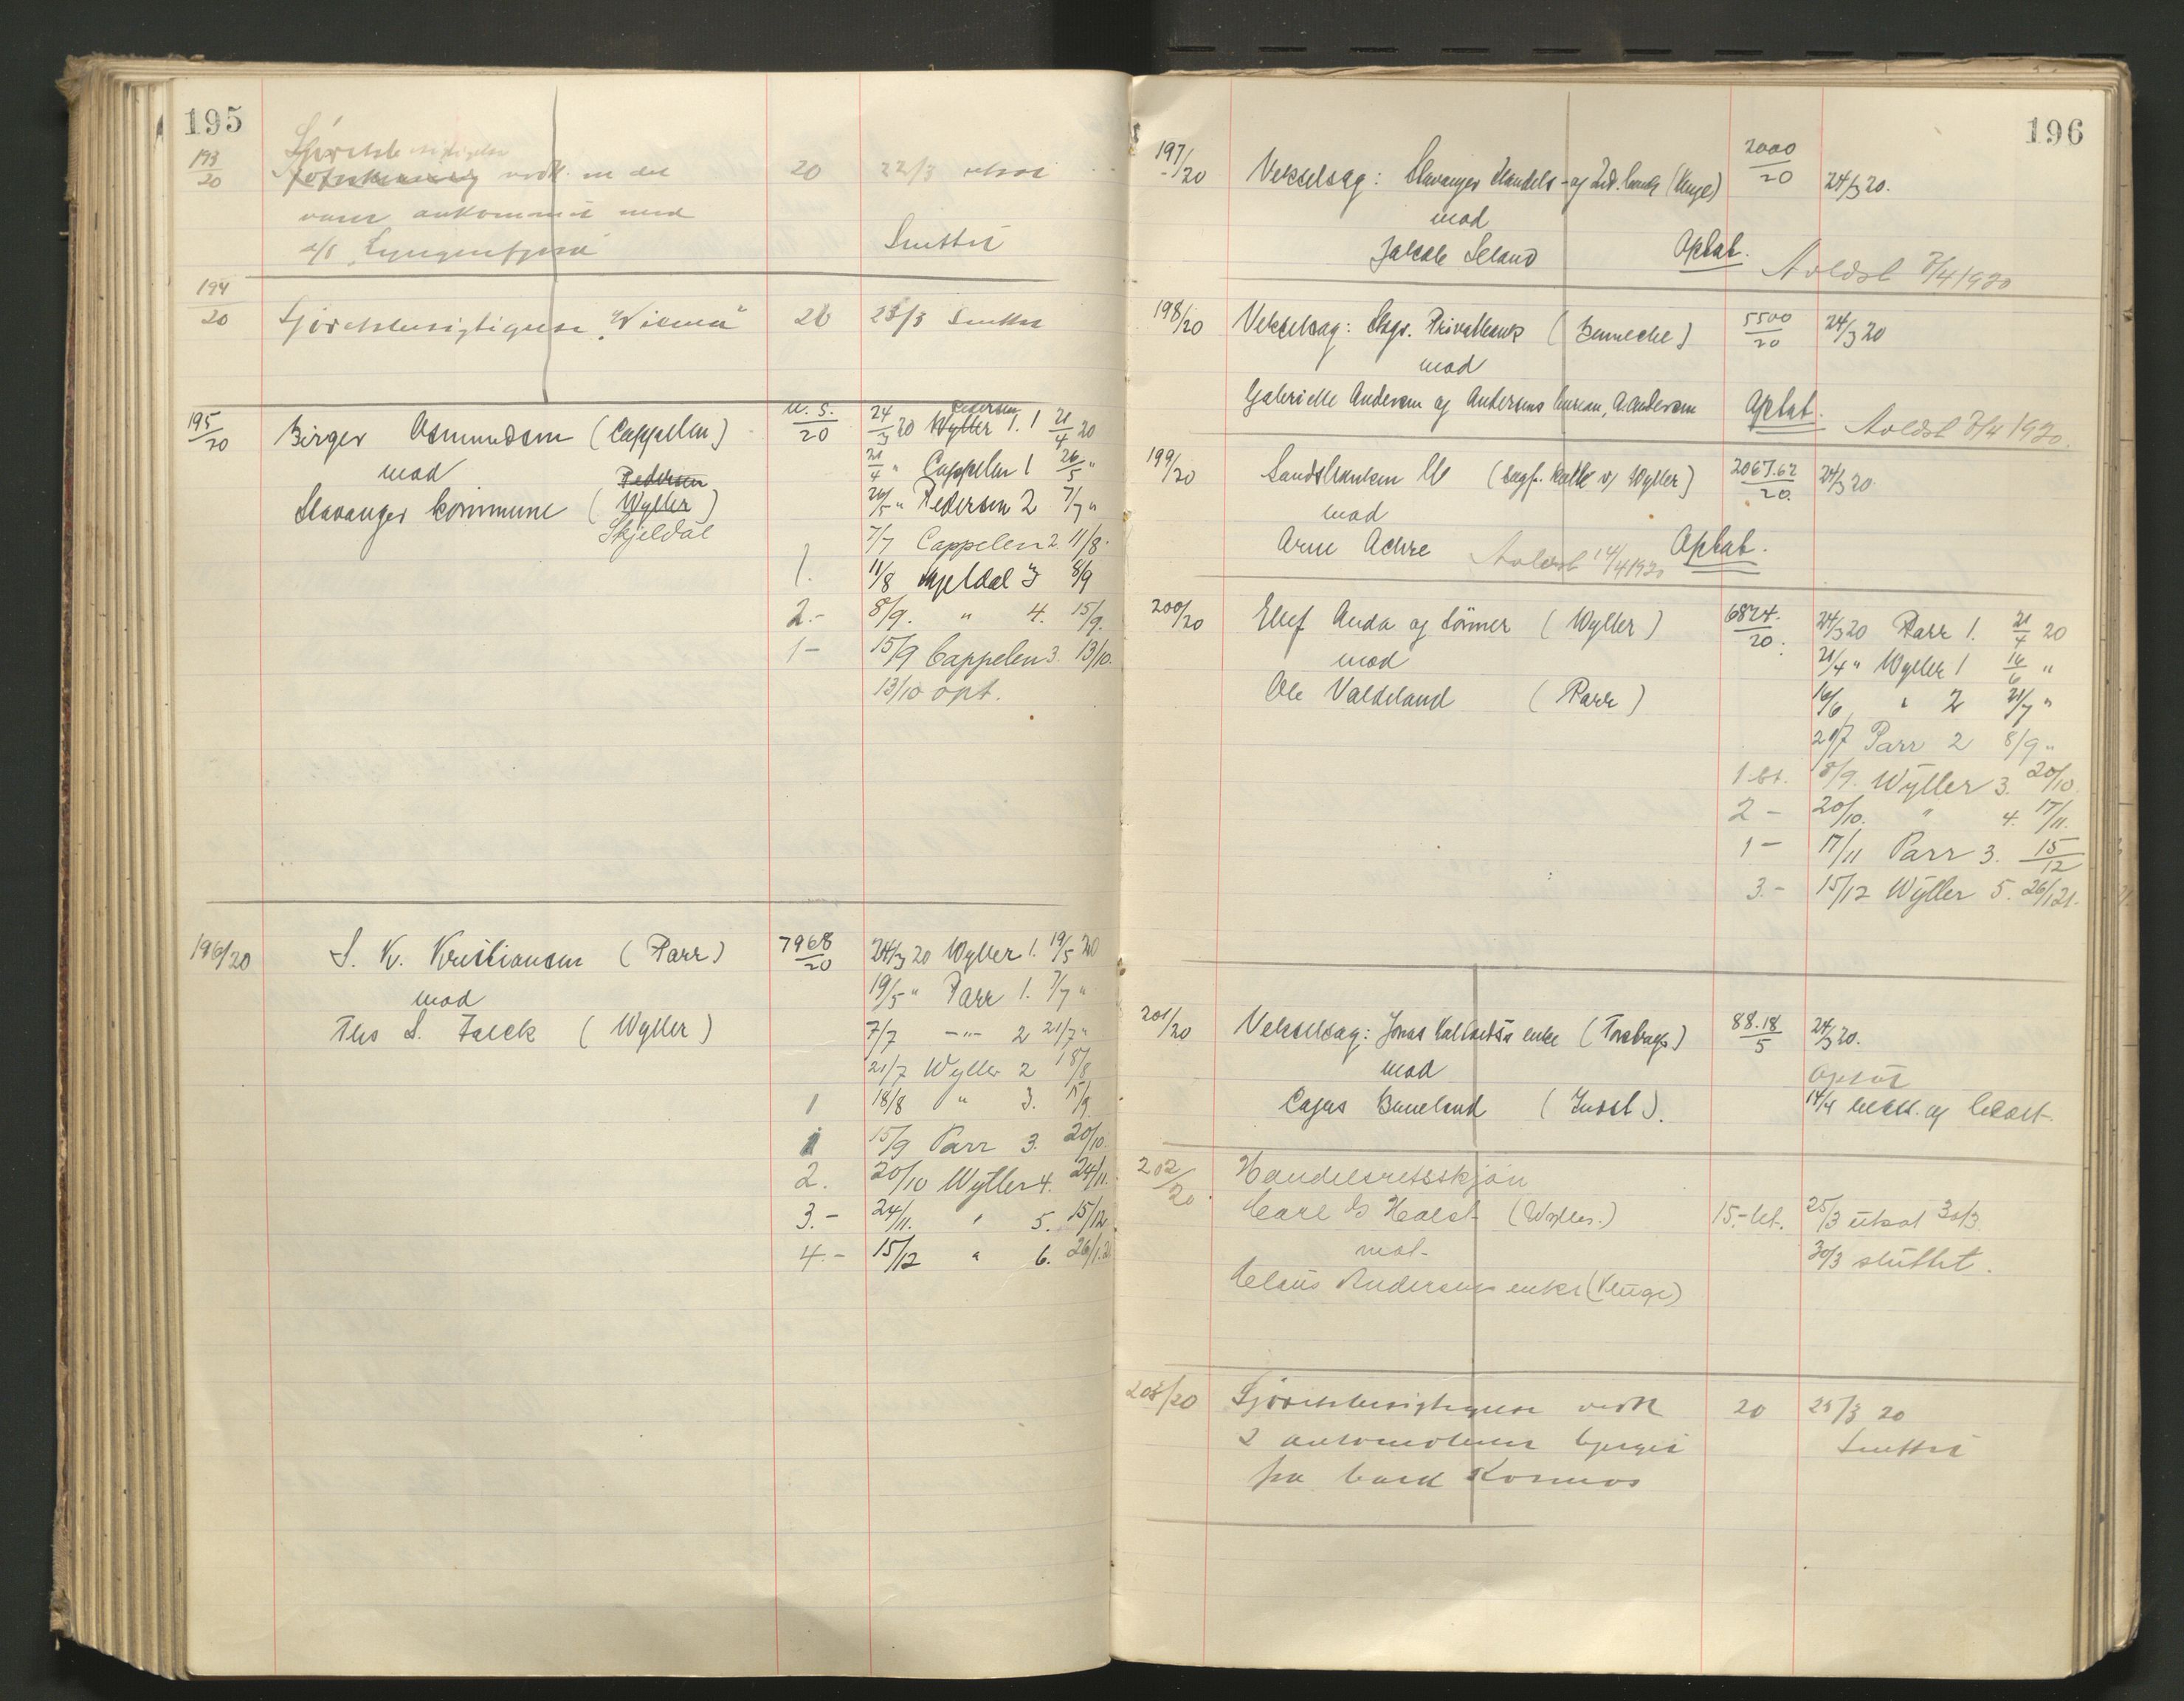 195
193/20 vedk. en del 20 22/3
varer ankommet med
s/s Lyngenfjord Sluttet
194/20 Sjørettsbesigtigelse "Wiema" 20 23/3 Sluttet
195/20 Birger Asmundsen (Cappelen) u. s./20 24/3 20 Wyller Pedersen 1. 21/4 20
mod 21/4 " Cappelen 1 26/5 "
Pedersen
Stavanger kommune (Wyller) 26/5 " Pedersen 2 7/7 "
Skjeldal 7/7 Cappelen 2. 11/8.
1. 11/8 Skjeldal 3 8/9
2.- 8/9. " 4. 15/9.
1- 15/9 Cappelen 3. 13/10.
13/10 opt.
196/20 S. K. Kristiansen (Parr) 7968/20 24/3 20 Wyller 1. 19/5 20
mod 19/5 " Parr 1. 7/7 "
Ths S. Falck (Wyller) 7/7 -"- 2 21/7 "
21/7 Wyller 2 18/8
1 18/8 " 3. 15/9
1 15/9 Parr 3. 20/10.
2. 20/10 Wyller 4. 24/11.
3.- 24/11. " 5. 15/12
4.- 15/12 " 6. 26/1.21
196
197/20 Vekselsag: Stavanger Handels- og Ind. bank (Kluge) 2000/20 24/3 20.
mod
Jakob Seland Optat. Avldst 7/4 1920
198/20 Vekselsag: Stvgr. Privatbank (Benneche) 5500/20 24/3 20
mod
Gabrielle Andersen og Andersens bureau, A. Andersen Optat. Avldst 7/4 1920.
199/20 Landsbanken (sagf. v/ Wyller) 2067.62/20. 24/3 20
mod
Arne Achre Avldst 14/4 1920 Optat.
200/20 Ellef Anda og Sönner (Wyller) 6824./20. 24/3 20 Parr 1. 21/4 20
mod 21/4 " Wyller 1 16/6 "
Ole Valdeland (Parr) 16/6 " 2 21/7 "
21/7 Parr 2 8/9 "
1 bt. 8/9. Wyller 3. 20/10.
2 - 20/10. " 4. 17/11.
1 - 17/11 Parr 3. 15/12
3.- 15/12 Wyller 5. 26/1 21.
201/20 Vekselsag: Jonas enke (Torkags) 88.18/5 24/3 20.
mod optat
Cajus Baneland (Indst.). 14/4
202/20. Handelsretsskjøn
Carl G Holst (Wyller.) 15.- bet. 25/3 utsat 30/3
mot- 30/3 sluttet.
Claus Andersens enke (Kluge)
203/20 Sjørettsbesigtigelse vedk 20 25/3 20
2 automobiler bjerget Sluttet
fra bark Kosmos